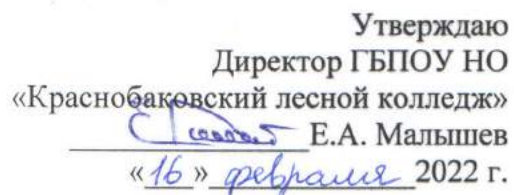 Утверждаю
Директор ГБПОУ НО
«Краснобаковский лесной колледж»
Е.А. Малышев
«16» февраля 2022 г.